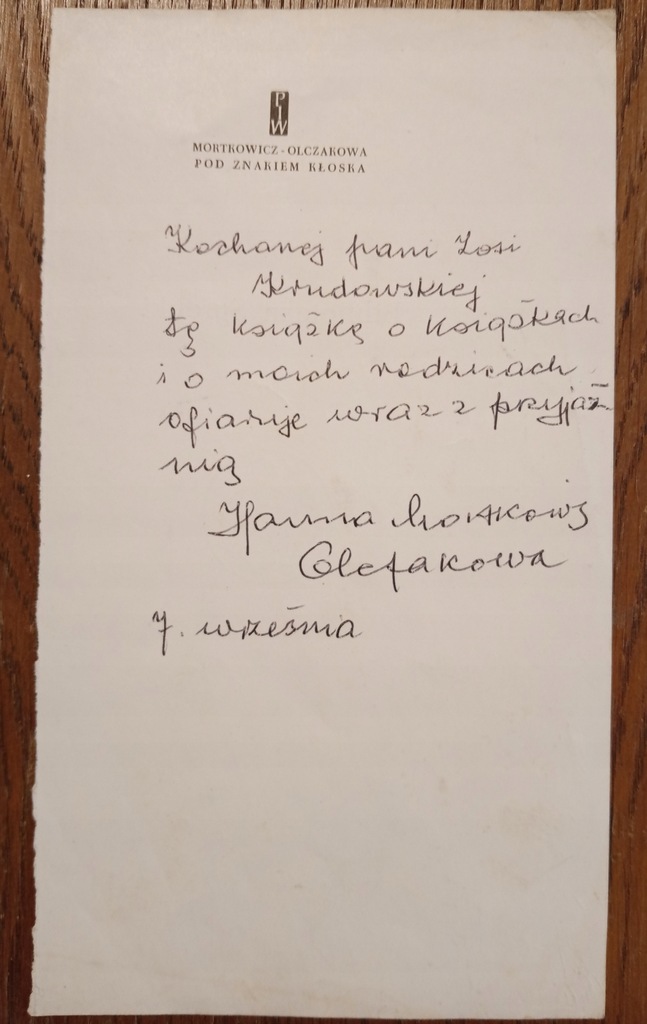 PIW
MORTKOWICZ-OLCZAKOWA
POD ZNAKIEM KŁOSKA
Kochanej pani Zosi
Krudowskiej
tę książkę o książkach
i o moich rodzicach
ofiaruję wraz z przyjaź-
nią
Hanna Mortkowicz
Olczakowa
7. września